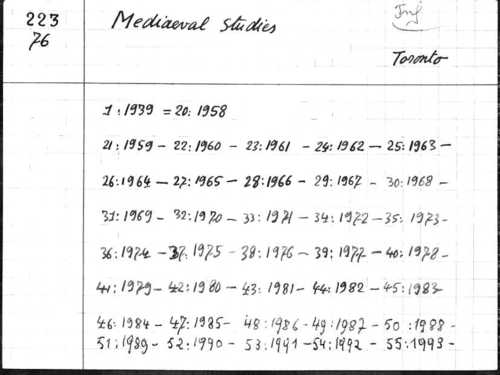 223
76
Mediaeval Studies
Inf
Toronto
1:1939 = 20:1958
21:1959 - 22:1960 - 23:1961 - 24:1962 - 25:1963 -
26:1964 - 27:1965 - 28:1966 - 29:1967 - 30:1968 -
31:1969 - 32:1970 - 33:1971 - 34:1972 - 35:1973 -
36:1974 - 37:1975 - 38:1976 - 39:1977 - 40:1978 -
41:1979 - 42:1980 - 43:1981 - 44:1982 - 45:1983
46:1984 - 47:1985 - 48:1986 - 49:1987 - 50:1988 -
51:1989 - 52:1990 - 53:1991 - 54:1992 - 55:1993 -